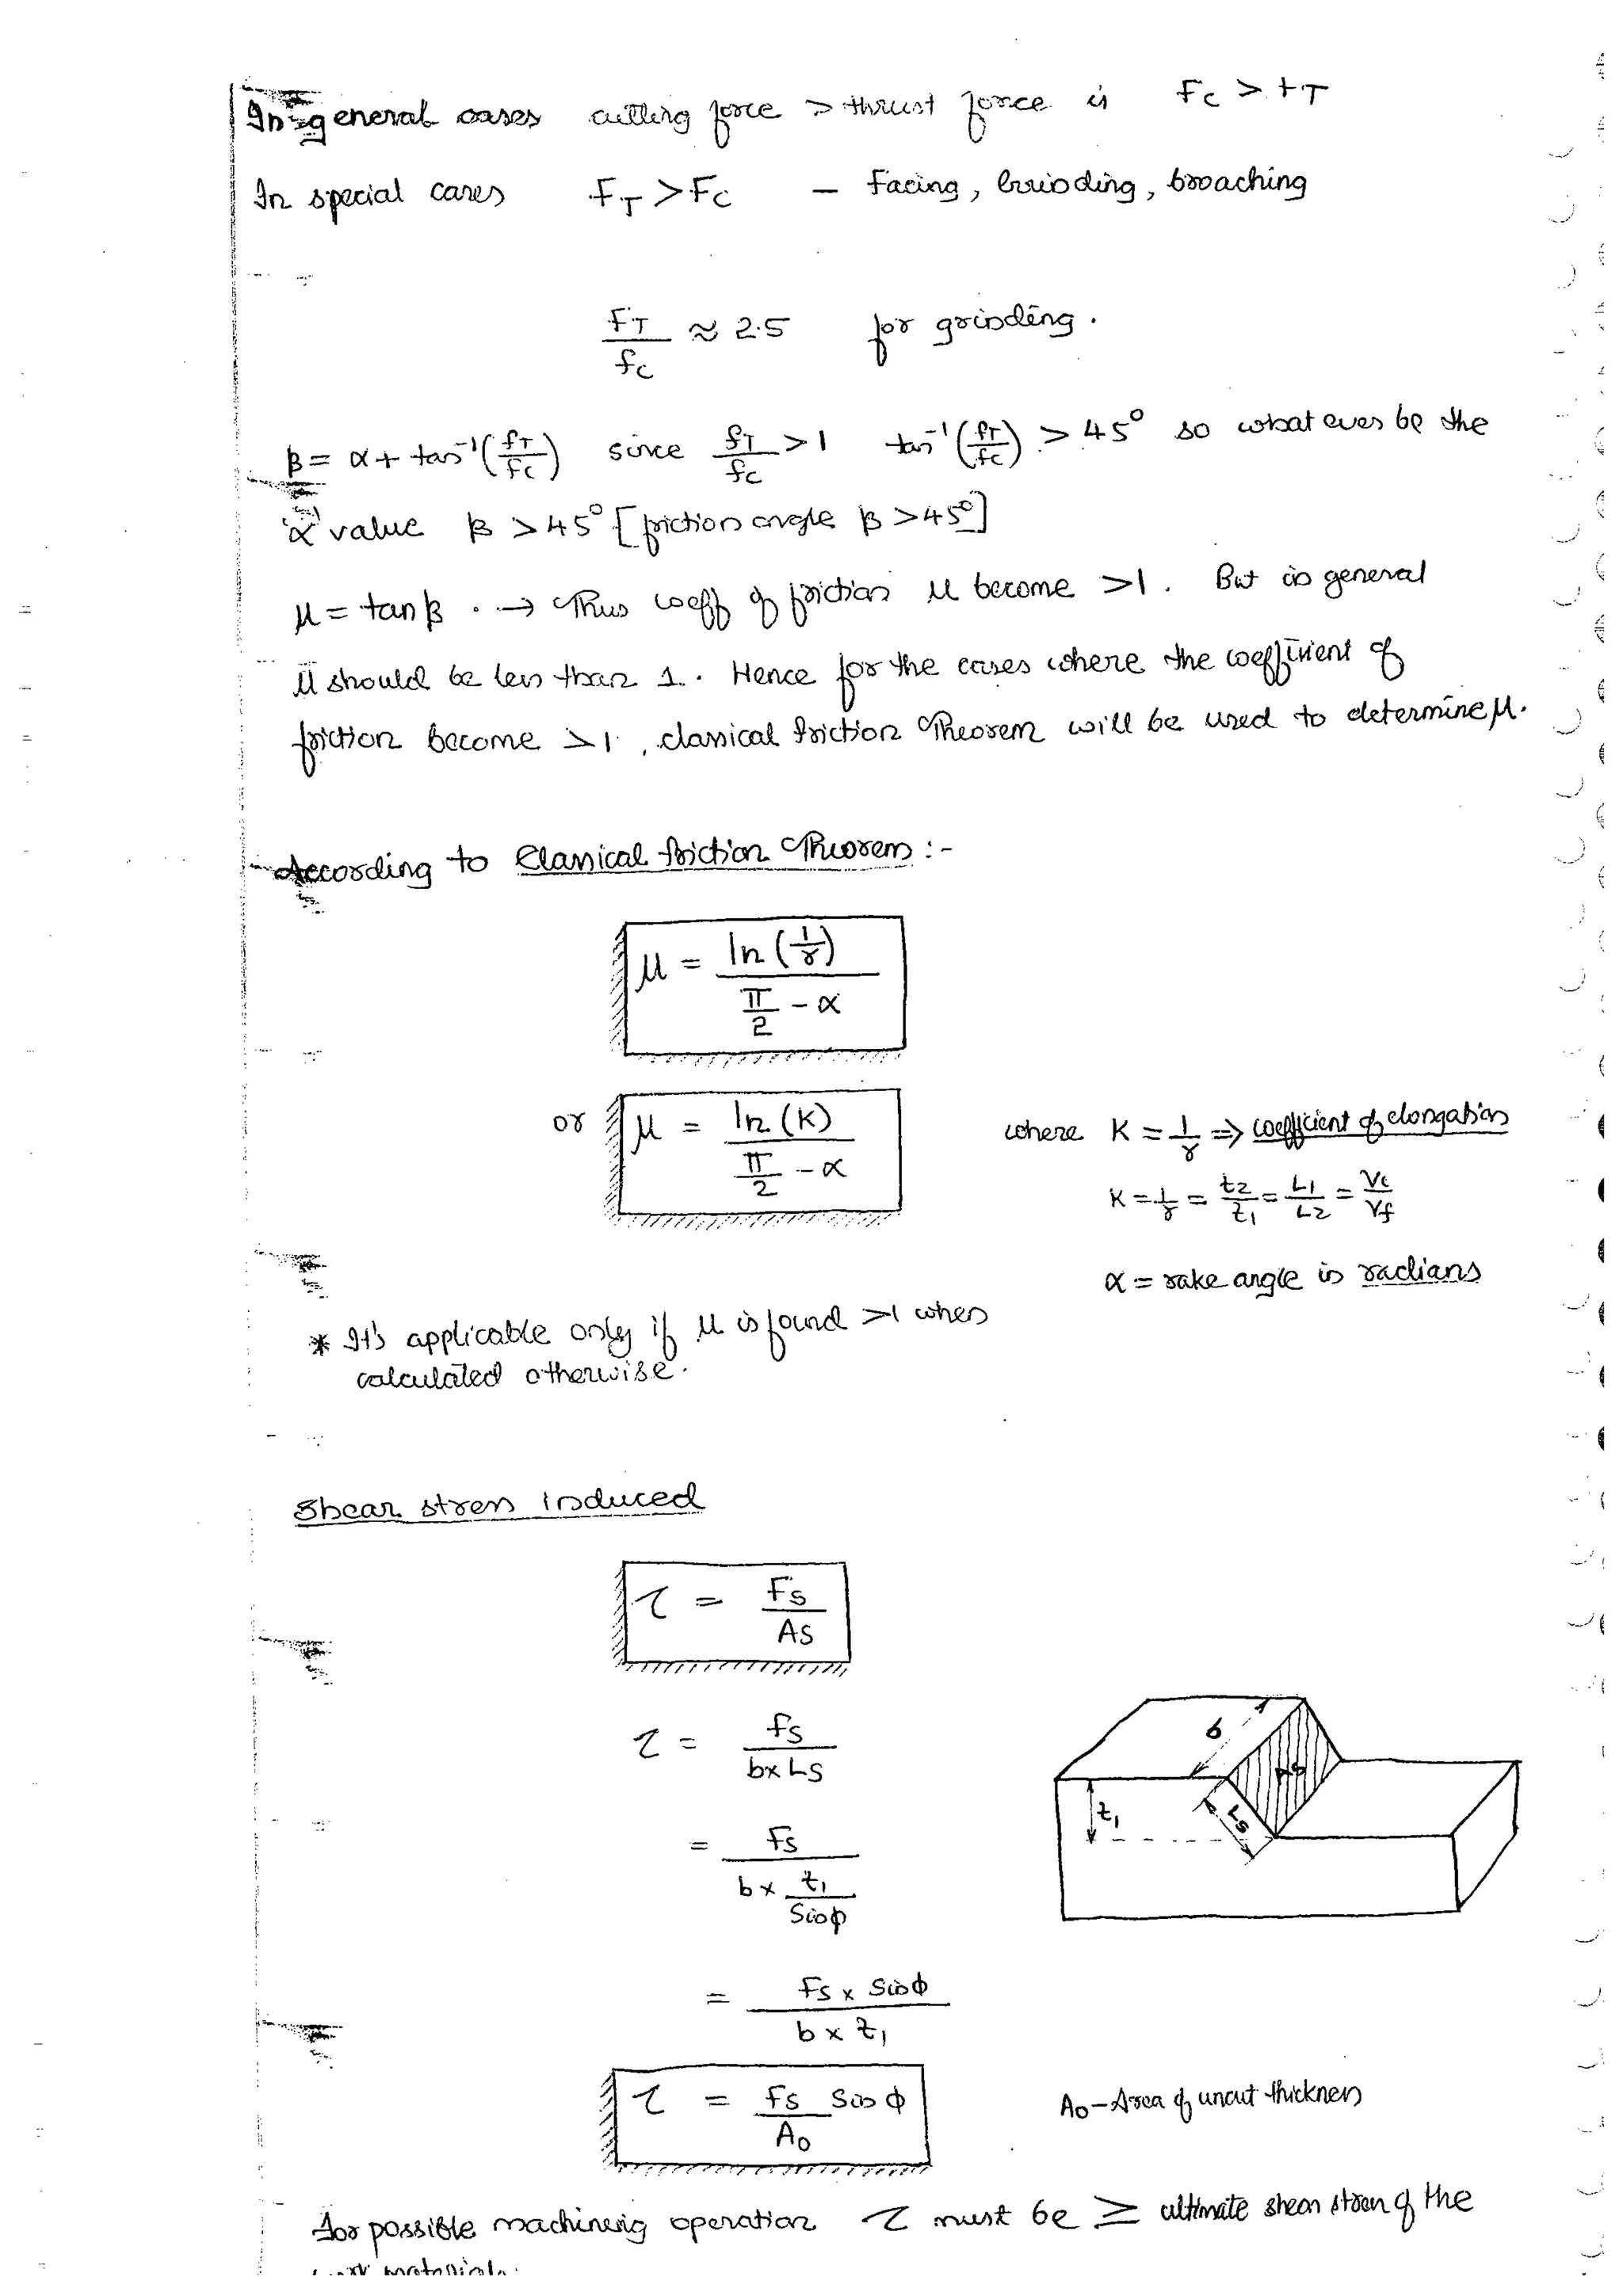 In general cases cutting force > thrust force is Fc > FT
In special cases FT > Fc – Facing, Grinding, broaching
FT/Fc ≈ 2.5 for grinding.
β = α + tan⁻¹(FT/Fc) since FT/Fc > 1 tan⁻¹(FT/Fc) > 45° so what ever be the
'α' value β > 45° [friction angle β > 45°]
μ = tan β . → Thus coeff of friction μ become > 1. But in general
μ should be less than 1. Hence for the cases where the coefficient of
friction become > 1, classical friction Theorem will be used to determine μ.
According to Classical friction Theorem :-
μ = ln(1/r) / (π/2 - α)
or μ = ln(K) / (π/2 - α) where K = 1/r ⇒ coefficient of elongation
K = 1/r = t2/t1 = L1/L2 = Vc/Vf
α = rake angle in radians
* It's applicable only if μ is found > 1 when
calculated otherwise.
Shear stress induced
τ = Fs/As
τ = Fs/(b x Ls)
= Fs/(b x t1/Sinφ)
= Fs x Sinφ/(b x t1)
b
As
t1
Ls
τ = Fs Sin φ/A0 A0 – Area of uncut thickness
For possible machining operation τ must be ≥ ultimate shear stress of the
work material.